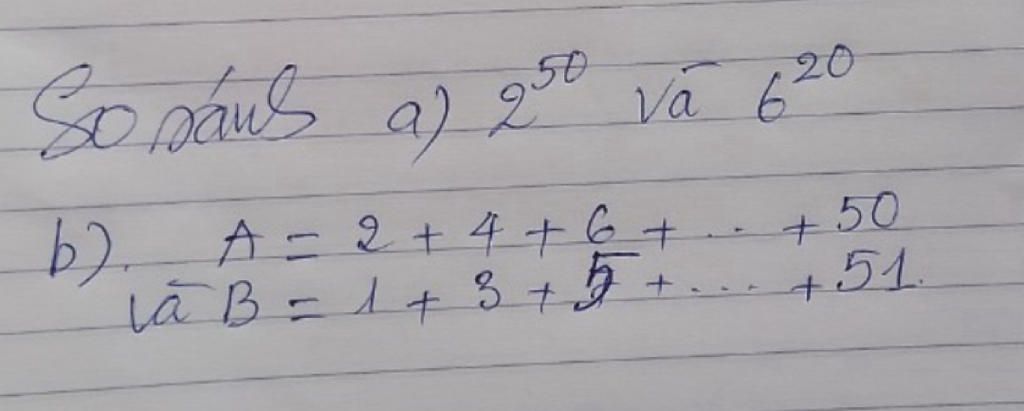 So sánh a) 2^50 và 6^20
b). A = 2 + 4 + 6 + .. + 50
và B = 1 + 3 + 5 + .... + 51.